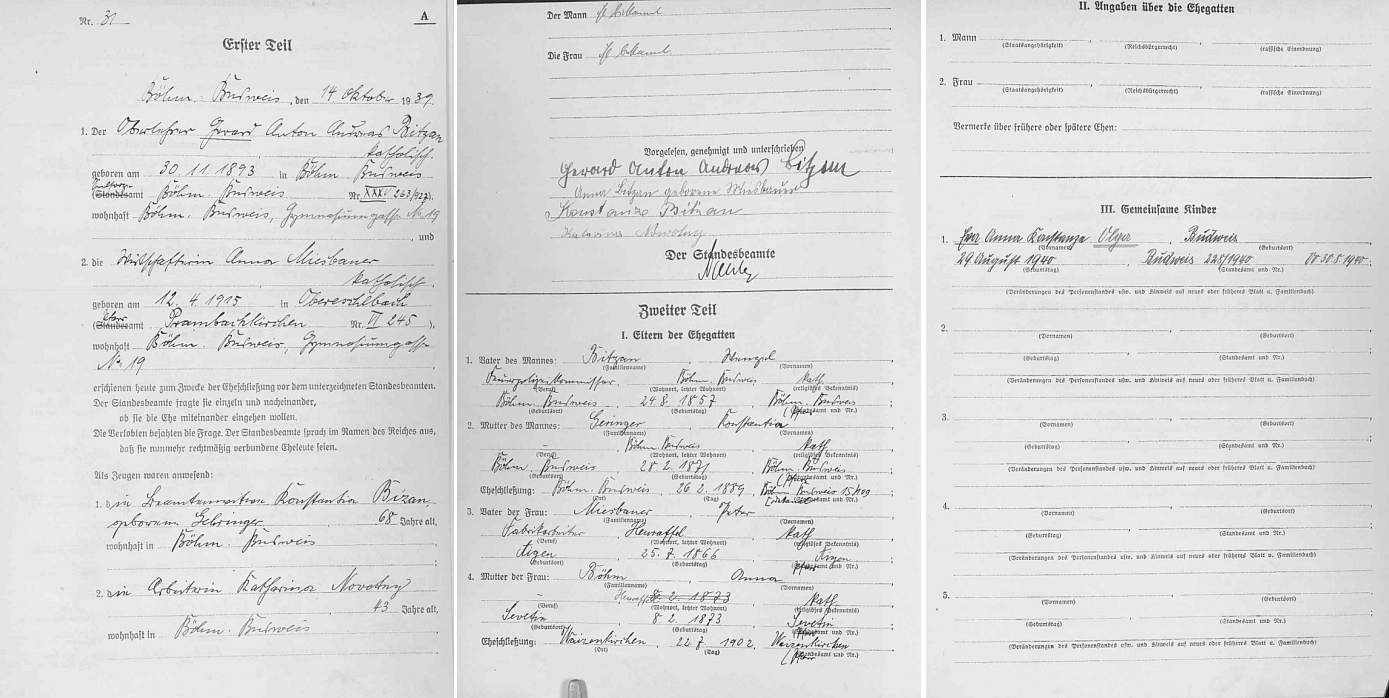 Nr. 31
A
Erster Teil
Böhm. Budweis, den 14 Oktober 1939.
1. Der Oberlehrer Gerard Anton Andreas Bitzan
katholisch.
geboren am 30. 11. 1893 in Böhm. Budweis
(Standesamt Böhm. Budweis Nr. XXXV 263/927),
wohnhaft Böhm. Budweis, Gymnasiumgasse No 19
, und
2. die Wirtschafterin Anna Miesbauer
katholisch.
geboren am 12. 4. 1915 in
(Standesamt Prambachkirchen Nr. VI 245 ),
wohnhaft Böhm. Budweis, Gymnasiumgasse
No 19
erschienen heute zum Zwecke der Eheschließung vor dem unterzeichneten Standesbeamten.
Der Standesbeamte fragte sie einzeln und nacheinander,
ob sie die Ehe miteinander eingehen wollen.
Die Verlobten bejahten die Frage. Der Standesbeamte sprach im Namen des Reiches aus,
daß sie nunmehr rechtmäßig verbundene Eheleute seien.
Als Zeugen waren anwesend:
1. die Beamtenwitwe Konstantia Bizan,
geborene Gehringer 68 Jahre alt,
wohnhaft in Böhm. Budweis
;
2. die Arbeiterin Katharina Novotny
43 Jahre alt,
wohnhaft in Böhm. Budweis
Der Mann
Die Frau
Vorgelesen, genehmigt und unterschrieben
Gerard Anton Andreas Bitzan
Anna Bitzan geborene Miesbauer
Konstanze Bitzan
Katarina Novotny
Der Standesbeamte
Zweiter Teil
I. Eltern der Ehegatten
1. Vater des Mannes: Bitzan, Wenzel
(Familienname) (Vornamen)
Böhm. Budweis kath.
(Beruf) (Wohnort, letzter Wohnort) (religiöses Bekenntnis)
Böhm. Budweis, 24. 8. 1857, Böhm. Budweis ;
(Geburtsort) (Geburtstag) (Standesamt und Nr.)
2. Mutter des Mannes: Geringer, Konstantia
(Familienname) (Vornamen)
– , Böhm. Budweis kath
(Beruf) (Wohnort, letzter Wohnort) (religiöses Bekenntnis)
Böhm. Budweis, 28. 2. 1871, Böhm. Budweis ;
(Geburtsort) (Geburtstag) (Standesamt und Nr.)
Eheschließung: Böhm. Budweis, 26. 2. 1889, Böhm Budweis
(Ort) (Tag) (Standesamt und Nr.)
3. Vater der Frau: Miesbauer, Peter
(Familienname) (Vornamen)
Fabrikarbeiter, Heuraffel kath
(Beruf) (Wohnort, letzter Wohnort) (religiöses Bekenntnis)
Aigen, 25. 7. 1866, Aigen
(Geburtsort) (Geburtstag) (Standesamt und Nr.)
4. Mutter der Frau: Böhm, Anna
(Familienname) (Vornamen)
– Heuraffel 8. 2. 1873 kath.
(Beruf) (Wohnort, letzter Wohnort) (religiöses Bekenntnis)
Sevetin, 8 2. 1873, Sevetin ;
(Geburtsort) (Geburtstag) (Standesamt und Nr.)
Eheschließung: Waizenkirchen, 22. 7. 1902, Waizenkirchen
(Ort) (Tag) (Standesamt und Nr.)
II. Angaben über die Ehegatten
1. Mann
(Staatsangehörigkeit) (Reichsbürgerrecht) (rassische Einordnung)
2. Frau
(Staatsangehörigkeit) (Reichsbürgerrecht) (rassische Einordnung)
Vermerke über frühere oder spätere Ehen:
III. Gemeinsame Kinder
1. Eva Anna Konstanze Olga, Budweis
(Vornamen) (Geburtsort)
29 August 1940, Budweis 228/1940
(Geburtstag) (Standesamt und Nr.)
(Veränderungen des Personenstandes usw. und Hinweis auf neues oder früheres Blatt u. Familienbuch)
2.
(Vornamen) (Geburtsort)
(Geburtstag) (Standesamt und Nr.)
(Veränderungen des Personenstandes usw. und Hinweis auf neues oder früheres Blatt u. Familienbuch)
3.
(Vornamen) (Geburtsort)
(Geburtstag) (Standesamt und Nr.)
(Veränderungen des Personenstandes usw. und Hinweis auf neues oder früheres Blatt u. Familienbuch)
4.
(Vornamen) (Geburtsort)
(Geburtstag) (Standesamt und Nr.)
(Veränderungen des Personenstandes usw. und Hinweis auf neues oder früheres Blatt u. Familienbuch)
5.
(Vornamen) (Geburtsort)
(Geburtstag) (Standesamt und Nr.)
(Veränderungen des Personenstandes usw. und Hinweis auf neues oder früheres Blatt u. Familienbuch)